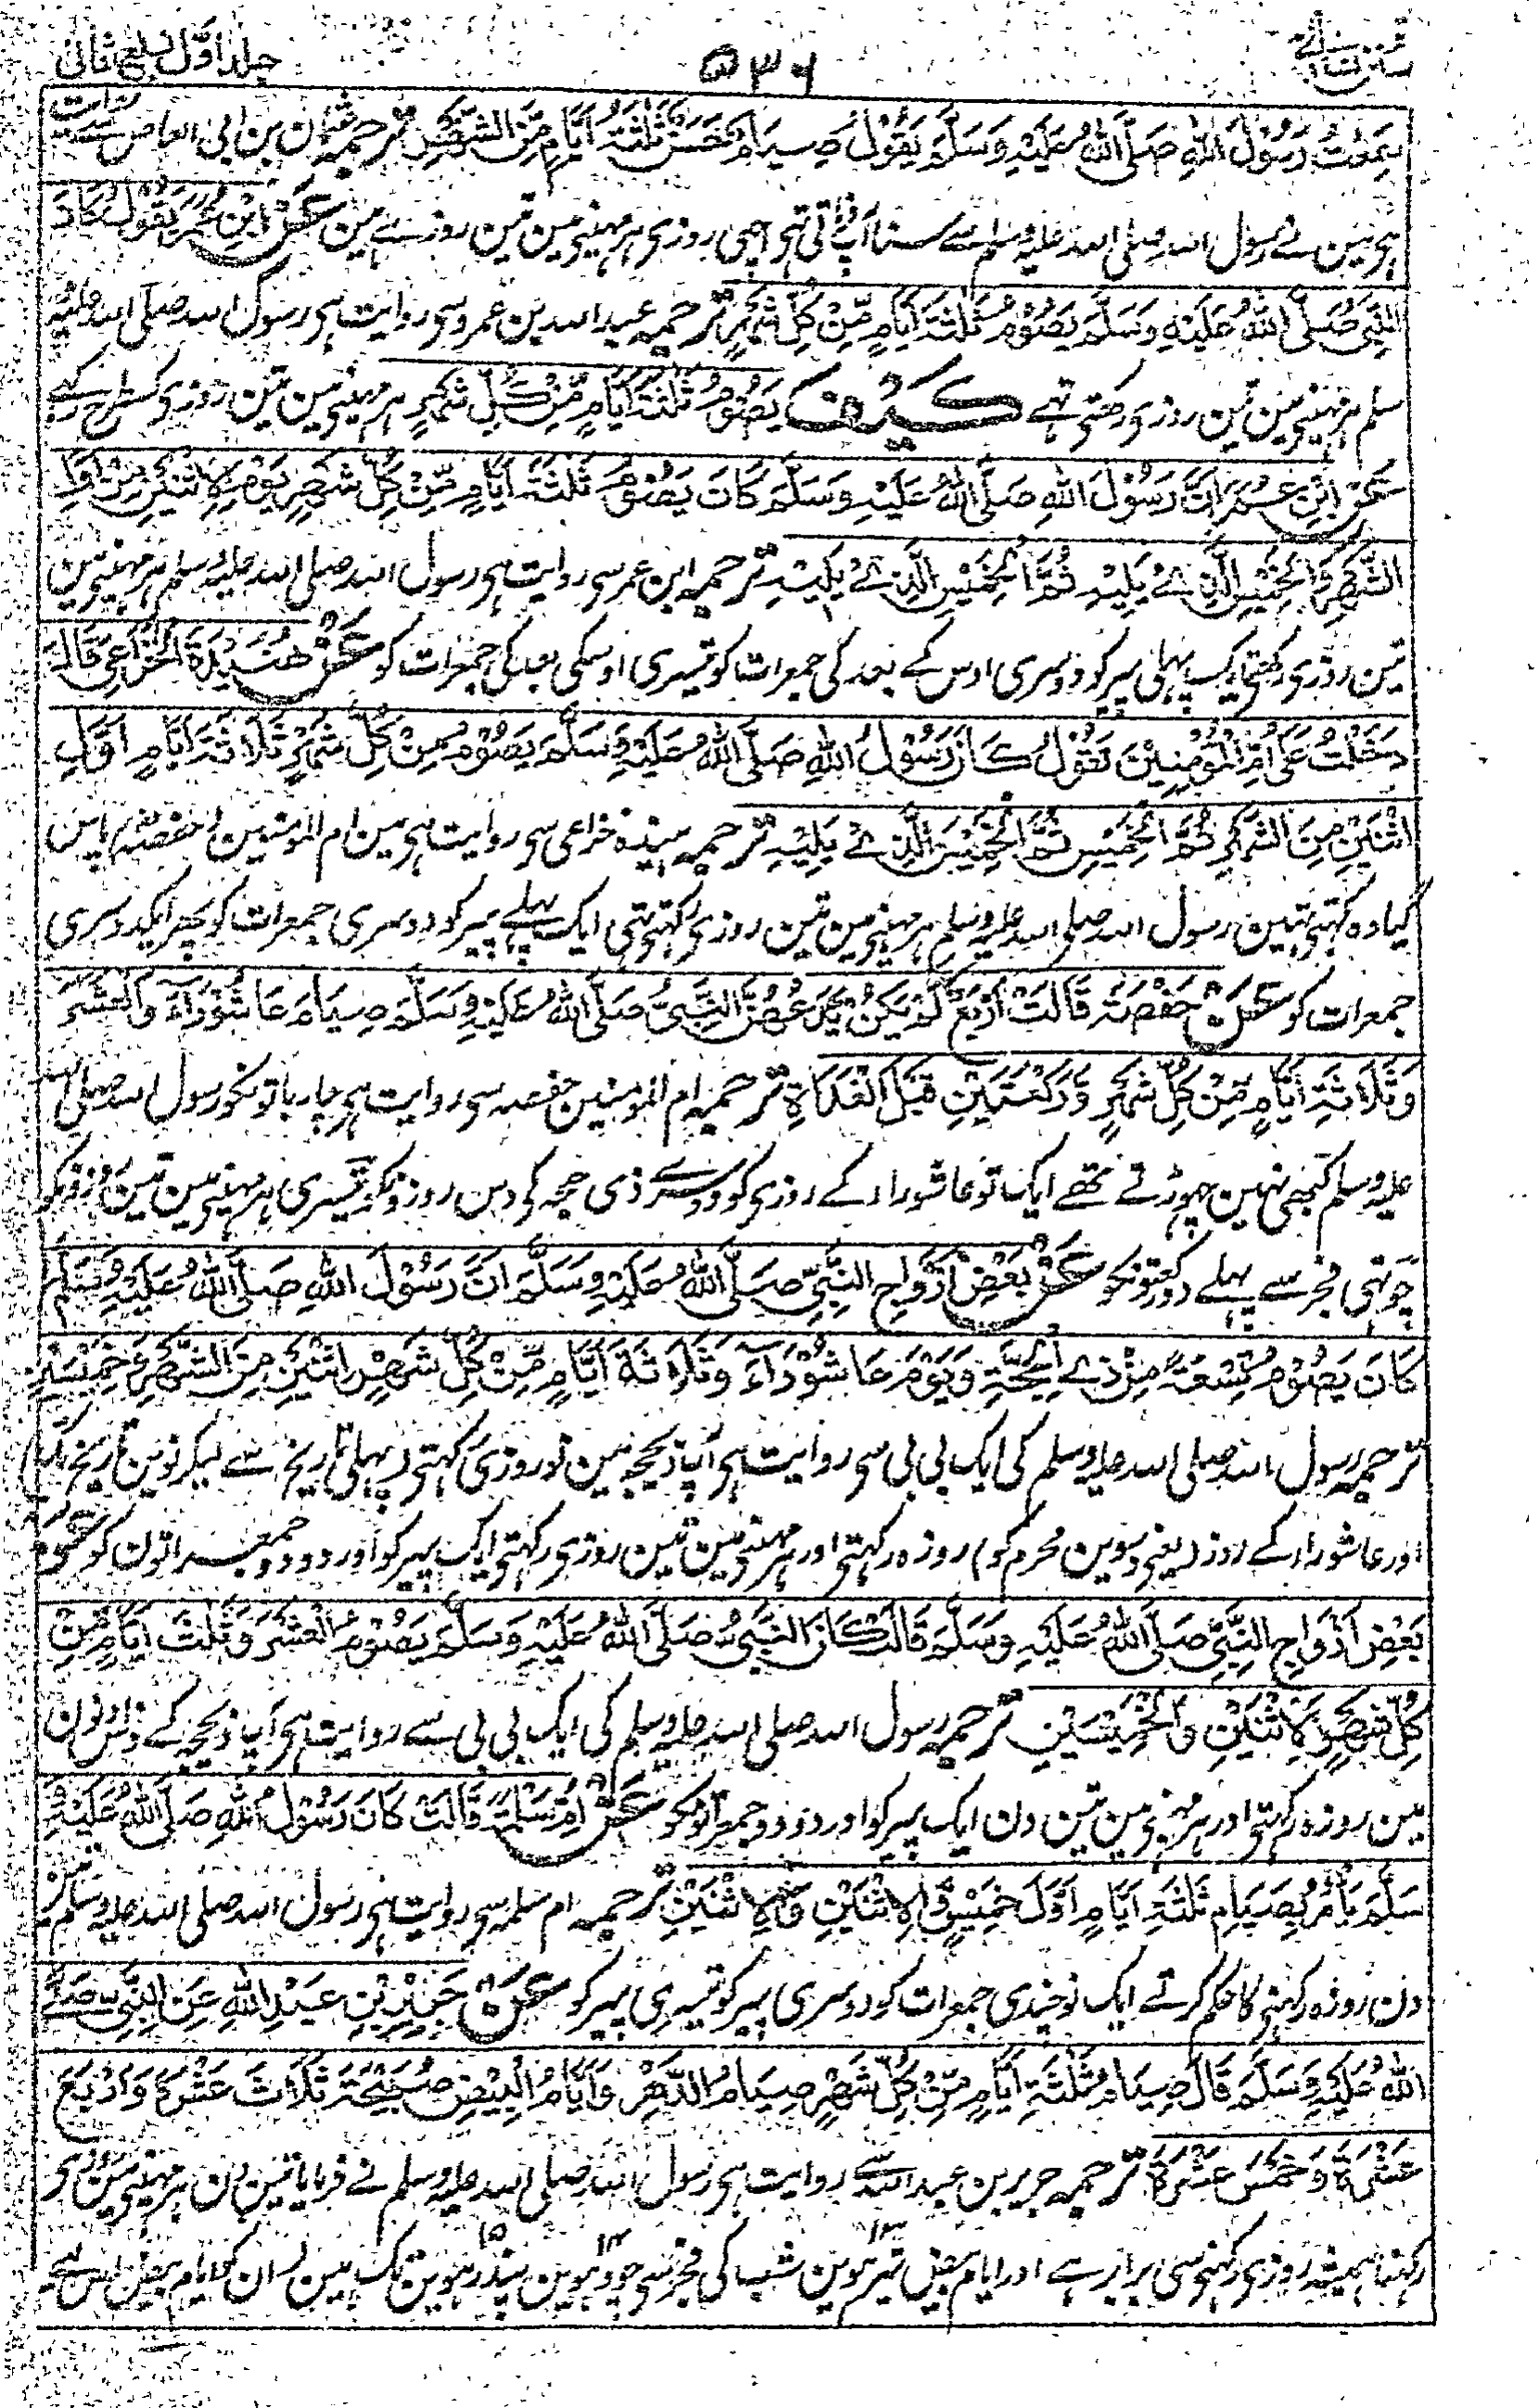 سنن نسائی ۵۳۶ جلد اول ربع ثانی
سَمِعْتُ رَسُوْلَ اللهِ صَلَّى اللهُ عَلَيْهِ وَسَلَّمَ يَقُوْلُ صِيَامٌ حَسَنٌ ثَلٰثَةُ اَيَّامٍ مِّنَ الشَّهْرِ ترجمہ عثمان بن ابی العاص سے روایت
ہی مین نے رسول الله صلی الله علیہ وسلم سے سنا آپ فرماتی تہی اچہی روزی ہر مہینی مین تین روزے ہین عَنْ ابْنِ عُمَرَ يَقُوْلُ كَانَ
النَّبِيُّ صَلَّى اللهُ عَلَيْهِ وَسَلَّمَ يَصُوْمُ ثَلٰثَةَ اَيَّامٍ مِّنْ كُلِّ شَهْرٍ ترجمہ عبد الله بن عمر سی روایت ہی رسول الله صلی الله علیہ
سلم ہر مہینی مین تین روزی رکہتی تہے كَيْفَ يَصُوْمُ ثَلٰثَةَ اَيَّامٍ مِّنْ كُلِّ شَهْرٍ ہر مہینی مین تین روزی کسطرح رکہے
عَنْ ابْنِ عُمَرَ اَنَّ رَسُوْلَ اللهِ صَلَّى اللهُ عَلَيْهِ وَسَلَّمَ كَانَ يَصُوْمُ ثَلٰثَةَ اَيَّامٍ مِّنْ كُلِّ شَهْرٍ يَوْمَ الْاِثْنَيْنِ مِنْ اَوَّلِ
الشَّهْرِ وَالْخَمِيْسِ الَّذِيْ يَلِيْهِ ثُمَّ الْخَمِيْسِ الَّذِيْ يَلِيْهِ ترجمہ ابن عمر سی روایت ہی رسول الله صلی الله علیہ وسلم ہر مہینی مین
تین روزی رکہتی ایک پہلی پیر کو دوسری اوس کے بعد کی جمعرات کو تیسری اوسکی بعد کی جمعرات کو عَنْ هُنَيْدَةَ الْخُزَاعِيِّ قَالَ
دَخَلْتُ عَلٰى اُمِّ الْمُؤْمِنِيْنَ تَقُوْلُ كَانَ رَسُوْلُ اللهِ صَلَّى اللهُ عَلَيْهِ وَسَلَّمَ يَصُوْمُ مِنْ كُلِّ شَهْرٍ ثَلَاثَةَ اَيَّامٍ اَوَّلِ
اثْنَيْنِ مِنَ الشَّهْرِ ثُمَّ الْخَمِيْسِ ثُمَّ الْخَمِيْسَ الَّذِيْ يَلِيْهِ ترجمہ ہنیدہ خزاعی سی روایت ہی مین ام المومنین حفصہ پاس
گیا وہ کہتی تہین رسول الله صلی الله علیہ وسلم ہر مہینی مین تین روزی رکہتی تہی ایک پہلے پیر کو دوسری جمعرات کو پہر ایک دوسری
جمعرات کو عَنْ حَفْصَةَ قَالَتْ اَرْبَعٌ لَمْ يَكُنْ يَدَعُهُنَّ النَّبِيُّ صَلَّى اللهُ عَلَيْهِ وَسَلَّمَ صِيَامَ عَاشُوْرَآءَ وَالْعَشْرَ
وَثَلَاثَةِ اَيَّامٍ مِّنْ كُلِّ شَهْرٍ وَّرَكْعَتَيْنِ قَبْلَ الْغَدَاةِ ترجمہ ام المومنین حفصہ سی روایت ہی چار باتونکو رسول الله صلی الله
علیہ وسلم کبہی نہین چہوڑتے تھے ایک تو عاشوراء کے روزی کو دوسرے ذی حجہ کی دس روزونکو تیسری ہر مہینی مین تین روزونکو
چوتہی فجر سے پہلے دو رکعتونکو عَنْ بَعْضِ اَزْوَاجِ النَّبِيِّ صَلَّى اللهُ عَلَيْهِ وَسَلَّمَ اَنَّ رَسُوْلَ اللهِ صَلَّى اللهُ عَلَيْهِ وَسَلَّمَ
كَانَ يَصُوْمُ تِسْعَةً مِنْ ذِي الْحِجَّةِ وَيَوْمَ عَاشُوْرَآءَ وَثَلَاثَةَ اَيَّامٍ مِّنْ كُلِّ شَهْرٍ اِثْنَيْنِ مِنَ الشَّهْرِ وَخَمِيْسَيْنِ
ترجمہ رسول الله صلی الله علیہ وسلم کی ایک بی بی سی روایت ہی آپ ذیحجہ مین نو روزی رکہتی (پہلی تاریخ سے لیکر نوین تاریخ تک)
اور عاشوراء کے روز (یعنی دسوین محرم کو) روزہ رکہتی اور ہر مہینی مین تین روزی رکہتی ایک پیر کو اور دو جمعراتون کو عَنْ
بَعْضِ اَزْوَاجِ النَّبِيِّ صَلَّى اللهُ عَلَيْهِ وَسَلَّمَ قَالَتْ كَانَ النَّبِيُّ صَلَّى اللهُ عَلَيْهِ وَسَلَّمَ يَصُوْمُ الْعَشْرَ وَثَلٰثَ اَيَّامٍ مِّنْ
كُلِّ شَهْرٍ الْاِثْنَيْنِ وَالْخَمِيْسَيْنِ ترجمہ رسول الله صلی الله علیہ وسلم کی ایک بی بی سے روایت ہی آپ ذیحجہ کے دس دنون
مین روزہ رکہتی اور ہر مہینی مین تین دن ایک پیر کو اور دو جمعراتونکو عَنْ اُمِّ سَلَمَةَ قَالَتْ كَانَ رَسُوْلُ اللهِ صَلَّى اللهُ عَلَيْهِ وَ
سَلَّمَ يَاْمُرُ بِصِيَامِ ثَلٰثَةِ اَيَّامٍ اَوَّلَ خَمِيْسٍ وَّالْاِثْنَيْنِ وَالْاِثْنَيْنِ ترجمہ ام سلمہ سی روایت ہی رسول الله صلی الله علیہ وسلم تین
دن روزہ رکہنی کا حکم کرتے ایک نوچندی جمعرات کو دوسری پیر کو تیسری پیر کو عَنْ جَرِيْرِ بْنِ عَبْدِ اللهِ عَنِ النَّبِيِّ صَلَّى
اللهُ عَلَيْهِ وَسَلَّمَ قَالَ صِيَامُ ثَلٰثَةِ اَيَّامٍ مِّنْ كُلِّ شَهْرٍ صِيَامُ الدَّهْرِ وَاَيَّامُ الْبِيْضِ صَبِيْحَةَ ثَلَاثَ عَشْرَةَ وَاَرْبَعَ
عَشْرَةَ وَخَمْسَ عَشْرَةَ ترجمہ جریر بن عبد الله سے روایت ہی رسول الله صلی الله علیہ وسلم نے فرمایا تین دن ہر مہینی مین روزی
رکہنا ہمیشہ روزی رکہنی سی برابر ہے اور ایام بیض تیرہوین ۱۳ شب کی فجر سی چودہوین ۱۴ پندرہوین ۱۵ تک ہین ان کو ایام بیض اس لیے